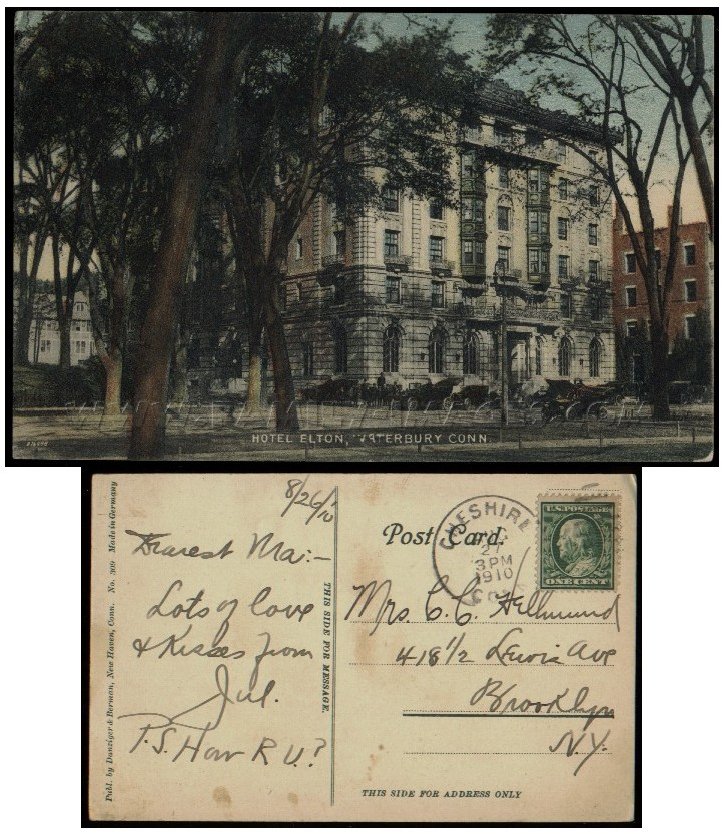 HOTEL ELTON, WATERBURY CONN
8/26/10
Dearest Ma:-
Lots of love
& Kisses from
Jul.
P.S. How R U.?
Publ. by Danziger & Berman, New Haven, Conn. No. 309 Made in Germany
THIS SIDE FOR MESSAGE.
Post Card.
CHESHIRE
AUG
27
3 PM
1910
CONN
U.S. POSTAGE
ONE CENT
Mrs. C. C.
418 1/2 Lewis Ave
Brooklyn
N.Y.
THIS SIDE FOR ADDRESS ONLY